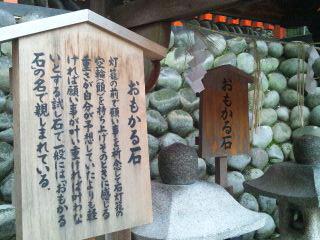 おもかる石
灯篭の前で願い事を祈念し石灯篭の
空輪(頭)を持ち上げ、そのときに感じる
重さが、自分が予想していたよりも軽
ければ願い事が叶い、重ければ叶わな
いとする試し石で、一般には「おもかる
石」の名で親しまれている。
おもかる石